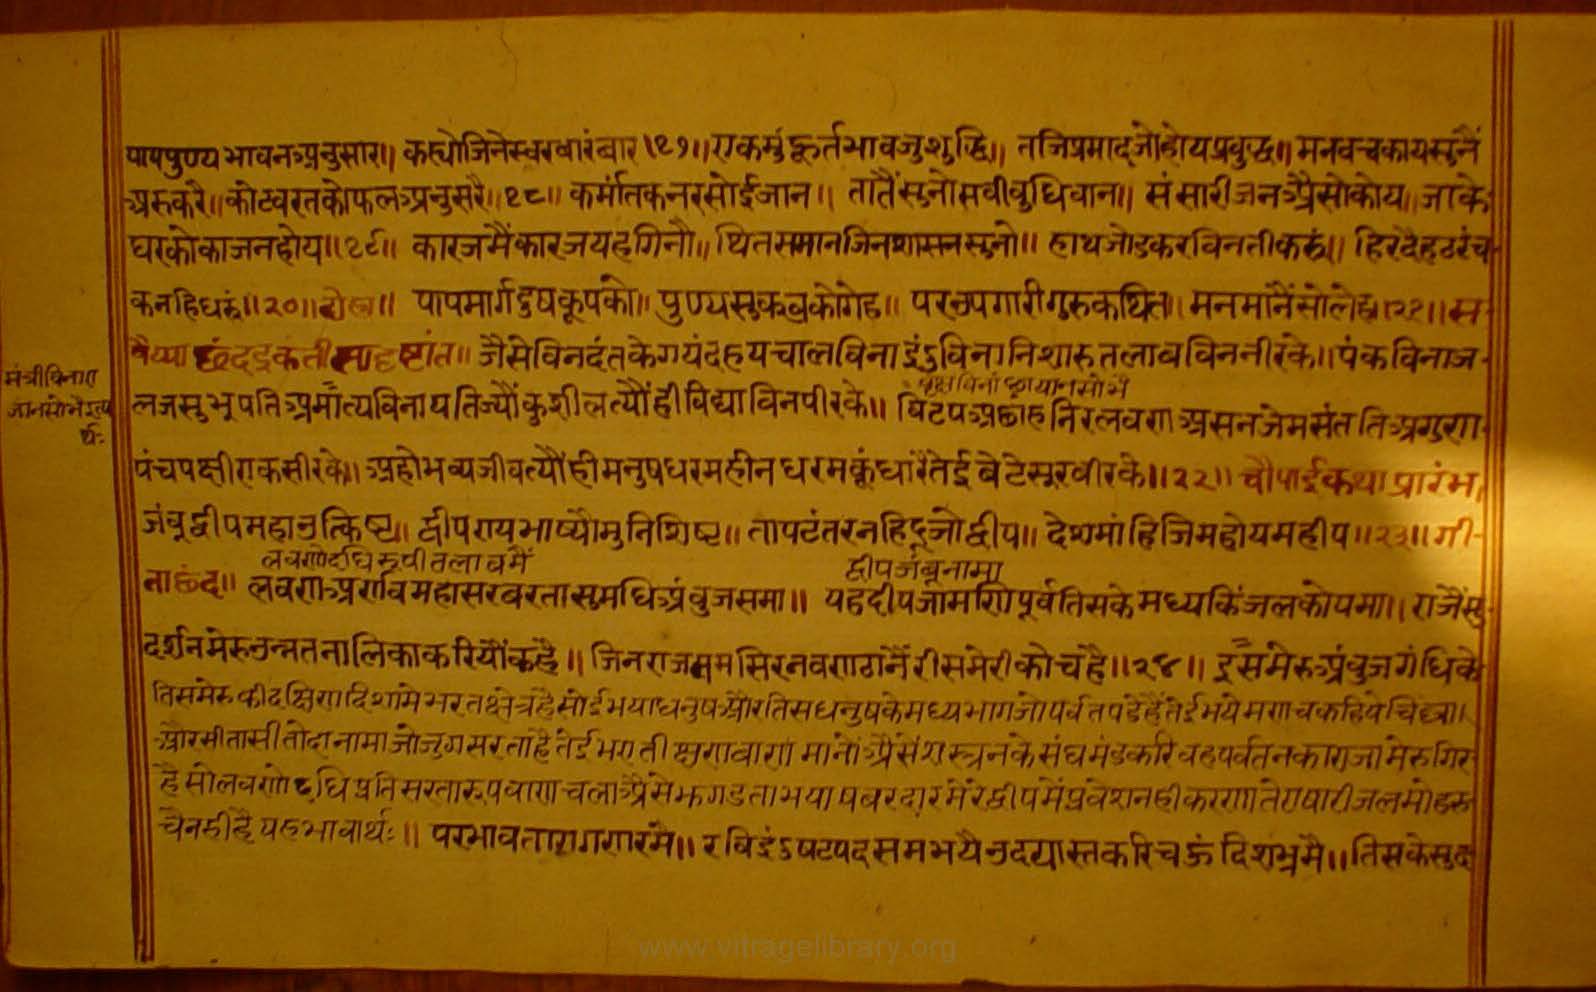 पापपुण्यभावनअनुसार॥ कह्योजिनेस्वरवारंवार॥१७॥एकमुंहूर्तभावजुशुद्धि॥ तजिप्रमादजोहोयप्रवुद्ध॥ मनवचकायसुनैं
अरुकरै॥ कोटवरतकोफलअनुसरै॥१८॥ कर्मातकनरसोईजान॥ तातैंसुनोसवीवुधिवान॥ संसारीजनअैसोकोय॥ जाके
घरकोकाजनहोय॥१९॥ कारजमैंकारजयहगिनौ॥ थितसमानजिनशासनसुनो॥ हाथजोडकरविनतीकरुं॥ हिरदैहठरंच-
कनहिधरुं॥२०॥दोहा॥ पापमार्गदुषकूपको॥ पुण्यसुकवकोगेह॥ परउपगारीगुरुकथित॥ मनमांनैंसोलेह॥२१॥स-
वैय्या छंदइकतीसादृष्टांत॥ जैसेविनदंतकेगयंदहयचालविनाइंऽविनानिशारुतलावविननीरके॥ पंकविनाज-
मंत्रीविनारा
जानसोभैइत्य
र्थः
वृक्षविनांछायानसोभै
लजसुभूपतिअमांत्यविनायतिज्यौंकुशीलत्यौंहीविद्याविनपीरके॥ विटपअछाहनिरलवणअसनजेमसंततिअगुण-
पंचपक्षीएकसीरके॥ अहोभव्यजीवत्यौंहीमनुषधरमहीनधरमकूंधांरैतेईबेटेसूरवीरके॥२२॥ चौपाईकथाप्रारंभ॥
जंवूद्वीपमहाउत्किष्ट॥ द्वीपरायभाष्यौमुनिशिष्ट॥ तापटंतरनहिदूजोद्वीप॥ देशमांहिजिमहोयमहीप॥२३॥गी-
लवणोदधिरूपीतलावमैं
द्वीपजंवूनामा
ताछंद॥ लवणअर्णवमहासरवरतासुमधिअंवुजसमा॥ यहदीपजामणिपूर्वतिसकेमध्यकिंजलकोपमा॥ राजैंसु-
दर्शनमेरुउन्नतनालिकाकरियौंकहै॥ जिनराजसमसिरनवणठानैंरीसमेरीकोचहै॥२४॥ इसमेरुअंवुजगंधिके
तिसमेरुकीदक्षिणदिशामेभरतक्षेत्रहैसोईभयाधनुषऔरतिसधनुषकेमध्यभागजोपर्वतपडेहैंतेईभयेमणचकहियेचिह्ना॥
औरसीतासीतोदानामाजोजुगसरताहैतेईभएतीक्षणवाणमानोअैसेंशस्त्रनकेसंघमंडकरिवहपर्वतनकाराजामेरुगिर-
हैसोलवणोदधिप्रतिसरतारूपवाणचलाअैसेझगडताभयाषबरदारमेरेद्वीपमेंप्रवेशनहीकरणातेराषारीजलमोहरु
चैनहीहैयहभावार्थः॥ परभावतारागणरमै॥ रविइंऽषटपदसमभयैउदयास्तकरिचऊंदिशभ्रमै॥तिसकेसुद
www.vitragelibrary.org